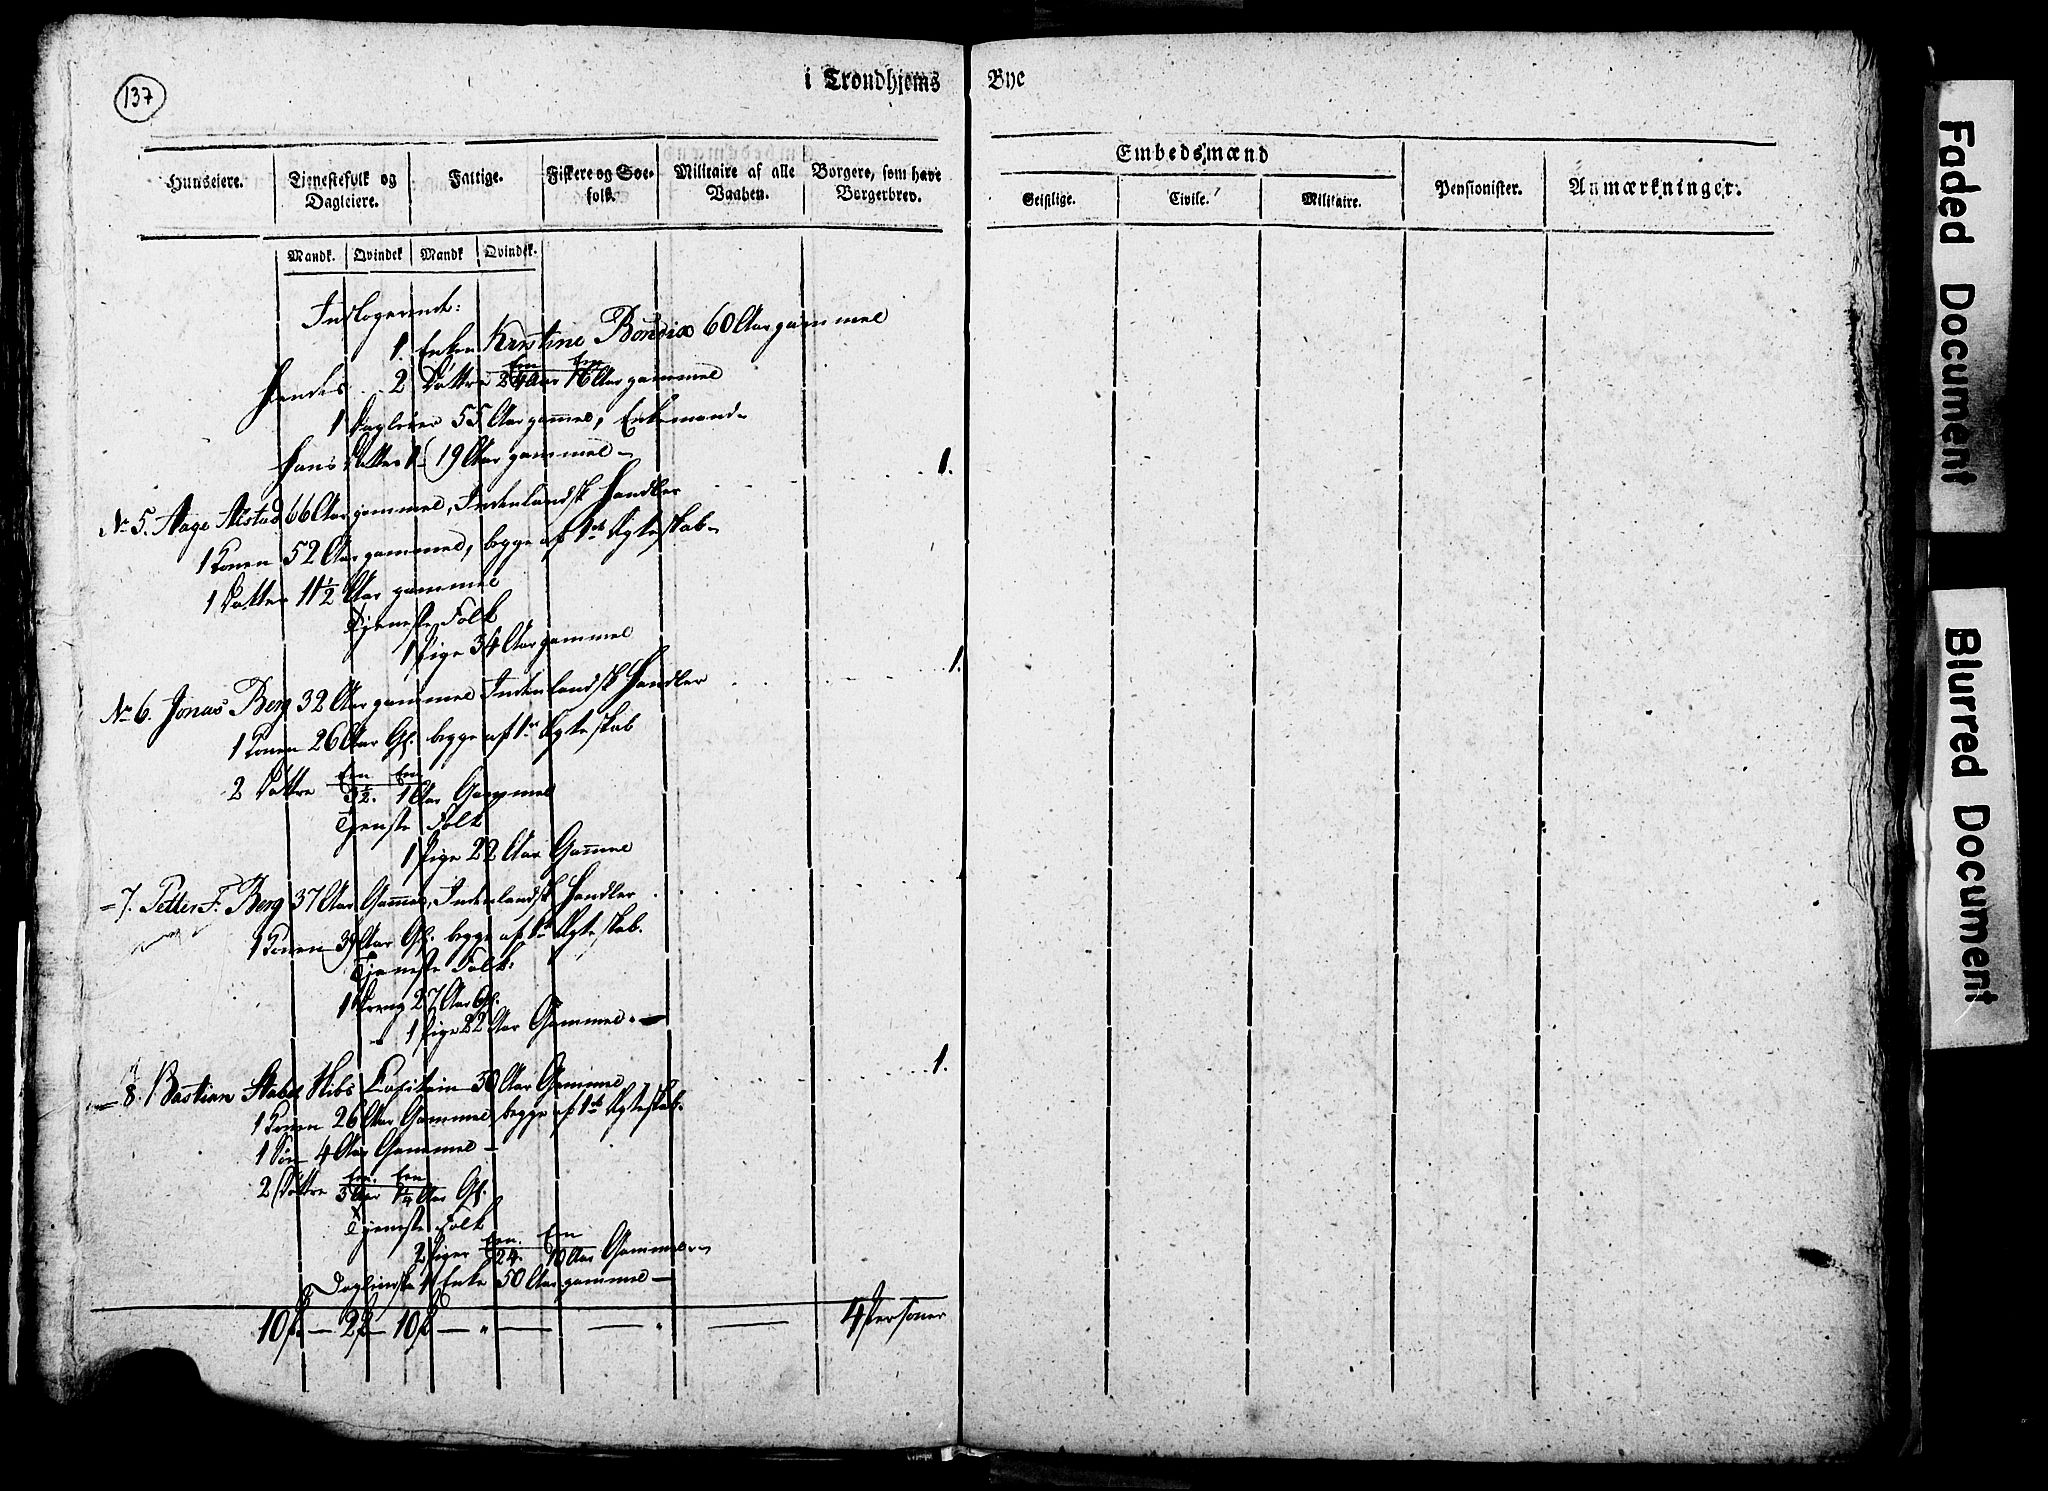 137
i Trondhjems Bye
Huuseiere.
Tienestefolk og Dagleiere.
Fattige.
Fiskere og Søefolk.
Militaire af alle Vaaben.
Borgere, som have Borgerbrev.
Embedsmænd
Geistlige.
Civile.
Militaire.
Pensionister.
Anmærkninger.
Mandk. Qvindek Mandk Qvindek.
Indlogerende:
1. Enken Kristine 60 Aar gammel
Een Een
Hendes 2 Døttre 24 Aar 16 Aar gammel
1 Dagleier 55 Aar gammel, Enkemand
Hans Datter 1 19 Aar gammel 1.
No 5. Aage Alstad 66 Aar gammel, Indenlandsk Handler
1 Konen 52 Aar gammel, begge af 1ste Ægteskab
1 Datter 11½ Aar gammel
Tjeneste Folk
1 Pige 34 Aar gammel
1.
No 6. Jonas Berg 32 Aar gammel Indenlandsk Handler
1 Konen 26 Aar Gl. begge af 1ste Ægteskab
Een Een
2 Døttre 3½. 1 Aar Gammel
Tjeneste Folk
1 Pige 22 Aar Gammel
= 7. Petter F. Berg 37 Aar Gammel, Indenlandsk Handler
1 Konen Aar Gl. begge af 1ste Ægteskab.
Tjeneste Folk:
1 Dreng 27 Aar Gl.
1 Pige 22 Aar Gammel.
1.
= 8. Bastian Skibs Capitain Aar Gammel
1 Konen 26 Aar Gammel begge af 1ste Ægteskab.
1 Søn 4 Aar Gammel
Een. Een
2 Døttre 5 Aar 1¼ Aar Gl.
Tjeneste Folk
Een. Een
2 Piger 24. 10 Aar Gammel
1 Enke 50 Aar gammel
10 — 2 — 10 — " — — " — 4 Personer
Faded Document
Blurred Document